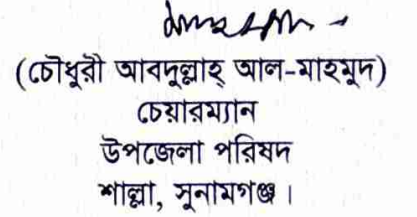 (চৌধুরী আবদুল্লাহ্ আল-মাহমুদ)
চেয়ারম্যান
উপজেলা পরিষদ
শাল্লা, সুনামগঞ্জ।